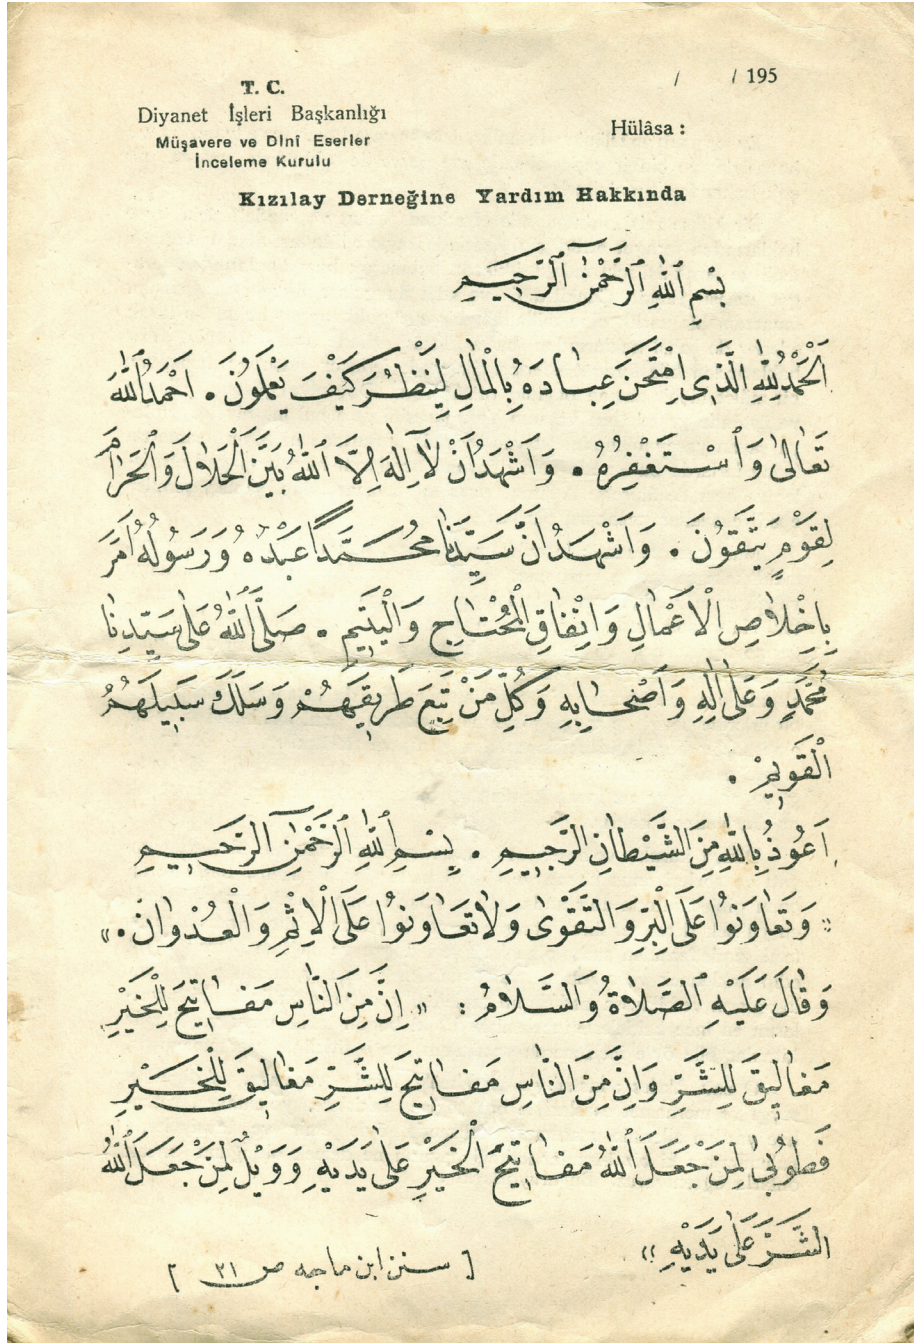 T. C.
Diyanet İşleri Başkanlığı
Müşavere ve Dînî Eserler
İnceleme Kurulu
/ / 195
Hülâsa :
Kızılay Derneğine Yardım Hakkında
بِسْمِ ٱللّٰهِ ٱلرَّحْمٰنِ ٱلرَّحِيمِ
اَلْحَمْدُ لِلّٰهِ الَّذِى امْتَحَنَ عِبَادَهُ بِالْمَالِ لِيَنْظُرَ كَيْفَ يَعْمَلُونَ . اَحْمَدُ اللّٰهَ
تَعَالٰى وَاَسْتَغْفِرُهُ . وَاَشْهَدُ اَنْ لَا اِلٰهَ اِلَّا اللّٰهُ بَيَّنَ الْحَلَالَ وَالْحَرَامَ
لِقَوْمٍ يَتَّقُونَ . وَاَشْهَدُ اَنَّ سَيِّدَنَا مُحَمَّدًا عَبْدُهُ وَرَسُولُهُ اَمَرَ
بِاِخْلَاصِ الْاَعْمَالِ وَاِنْفَاقِ الْمُحْتَاجِ وَالْيَتِيمِ . صَلَّى اللّٰهُ عَلٰى سَيِّدِنَا
مُحَمَّدٍ وَعَلٰى اٰلِهِ وَاَصْحَابِهِ وَكُلِّ مَنْ تَبِعَ طَرِيقَهُمْ وَسَلَكَ سَبِيلَهُمُ
الْقَوِيمْ .
اَعُوذُ بِاللّٰهِ مِنَ الشَّيْطَانِ الرَّجِيمِ . بِسْمِ اللّٰهِ الرَّحْمٰنِ الرَّحِيمِ
« وَتَعَاوَنُوا عَلَى الْبِرِّ وَالتَّقْوٰى وَلَا تَعَاوَنُوا عَلَى الْاِثْمِ وَالْعُدْوَانِ . »
وَقَالَ عَلَيْهِ الصَّلَاةُ وَالسَّلَامُ : « اِنَّ مِنَ النَّاسِ مَفَاتِيحَ لِلْخَيْرِ
مَغَالِيقَ لِلشَّرِّ وَاِنَّ مِنَ النَّاسِ مَفَاتِيحَ لِلشَّرِّ مَغَالِيقَ لِلْخَيْرِ
فَطُوبٰى لِمَنْ جَعَلَ اللّٰهُ مَفَاتِيحَ الْخَيْرِ عَلٰى يَدَيْهِ وَوَيْلٌ لِمَنْ جَعَلَ اللّٰهُ
الشَّرَّ عَلٰى يَدَيْهِ »
[ سنن ابن ماجه ص ٢١ ]